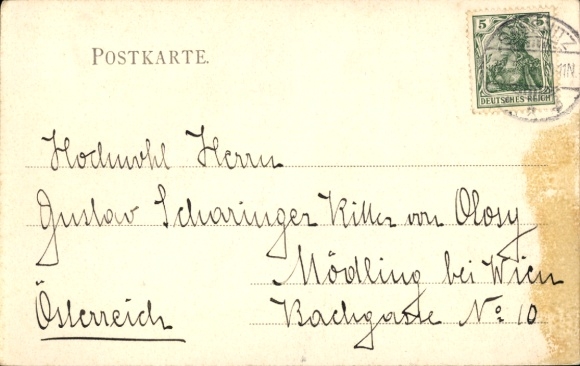 POSTKARTE.
5 5
DEUTSCHES REICH
Hochwohl Herrn
Gustav Scharinger Ritter von Olosy
Mödling bei Wien
Österreich Bachgasse No 10